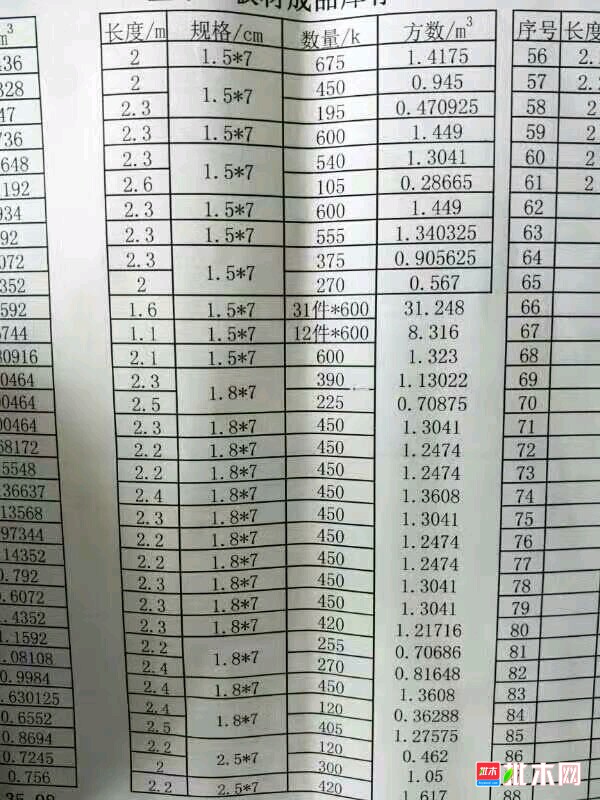 板材成品库存
m³ 长度/m 规格/cm 数量/k 方数/m³ 序号 长度
436 2 1.5*7 675 1.4175 56 2.
328 2 1.5*7 450 0.945 57 2.
47 2.3 195 0.470925 58 2
736 2.3 1.5*7 600 1.449 59 2
648 2.3 1.5*7 540 1.3041 60 2
192 2.6 105 0.28665 61 2
934 2.3 1.5*7 600 1.449 62
92 2.3 1.5*7 555 1.340325 63
072 2.3 1.5*7 375 0.905625 64
352 2 270 0.567 65
592 1.6 1.5*7 31件*600 31.248 66
744 1.1 1.5*7 12件*600 8.316 67
80916 2.1 1.5*7 600 1.323 68
00464 2.3 1.8*7 390 1.13022 69
00464 2.5 225 0.70875 70
00464 2.3 1.8*7 450 1.3041 71
68172 2.2 1.8*7 450 1.2474 72
5548 2.2 1.8*7 450 1.2474 73
36637 2.4 1.8*7 450 1.3608 74
13568 2.3 1.8*7 450 1.3041 75
97344 2.2 1.8*7 450 1.2474 76
14352 2.2 1.8*7 450 1.2474 77
0.792 2.3 1.8*7 450 1.3041 78
0.6072 2.3 1.8*7 450 1.3041 79
1.4352 2.3 1.8*7 420 1.21716 80
1.1592 2.2 1.8*7 255 0.70686 81
1.08108 2.4 270 0.81648 82
0.9984 2.4 1.8*7 450 1.3608 83
.630125 2.4 1.8*7 120 0.36288 84
0.6552 2.5 405 1.27575 85
0.8694 2.2 2.5*7 120 0.462 86
0.7245 2 300 1.05
0.756 2.2 2.5*7 420 1.617 88
35.98
批木网